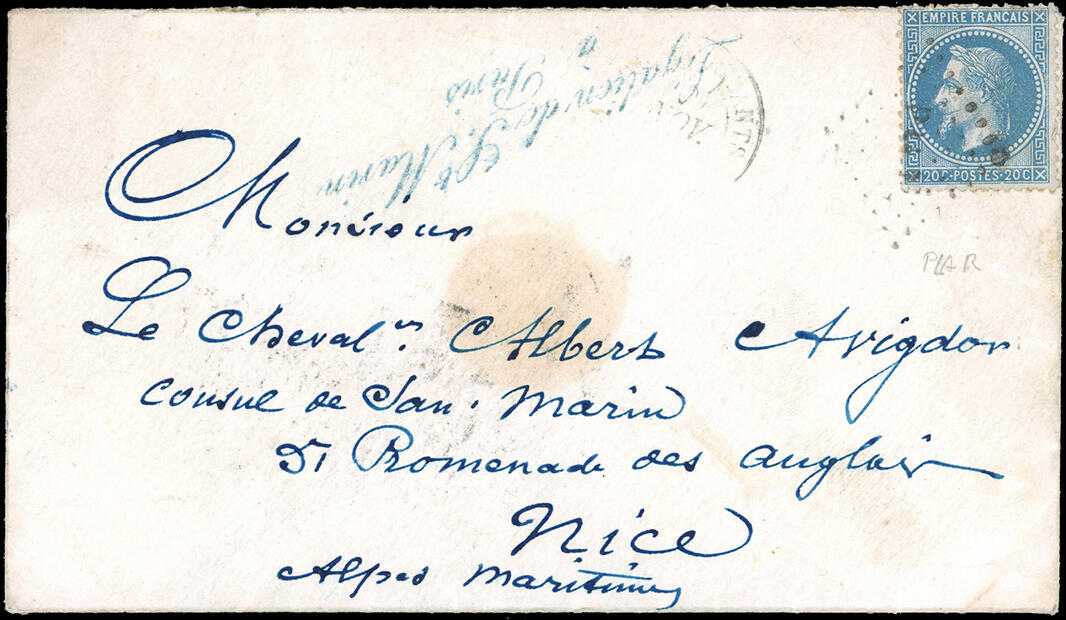 EMPIRE FRANÇAIS
20 C · POSTES · 20 C
Légation de St Marin
à
Paris
PLAR
Monsieur
Le Chevalier Albert Avigdor
Consul de San. Marin
51 Promenade des Anglais
Nice
Alpes Maritimes